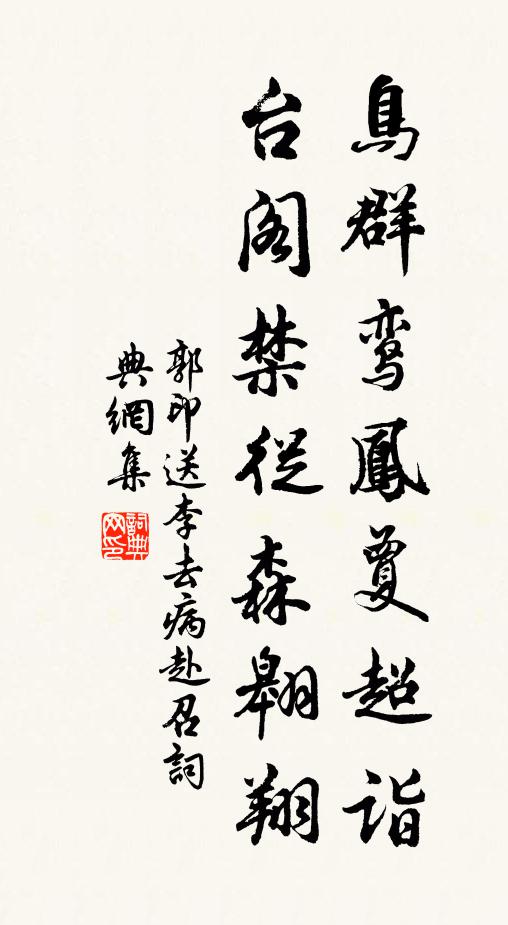 鳥群鸾鳳夐超诣
台阁禁從森翱翔
郭印送李去病赴召詞
典網集
詞典网印